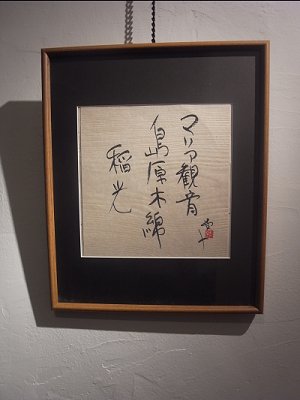 マリア観音
島原木綿
稲光